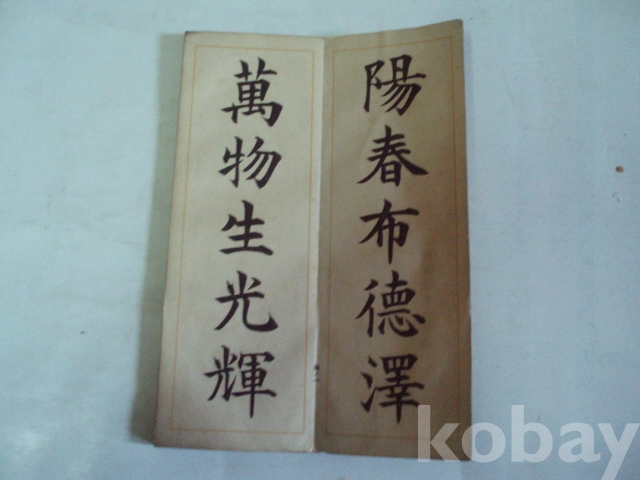 陽春布德澤
萬物生光輝
kobay